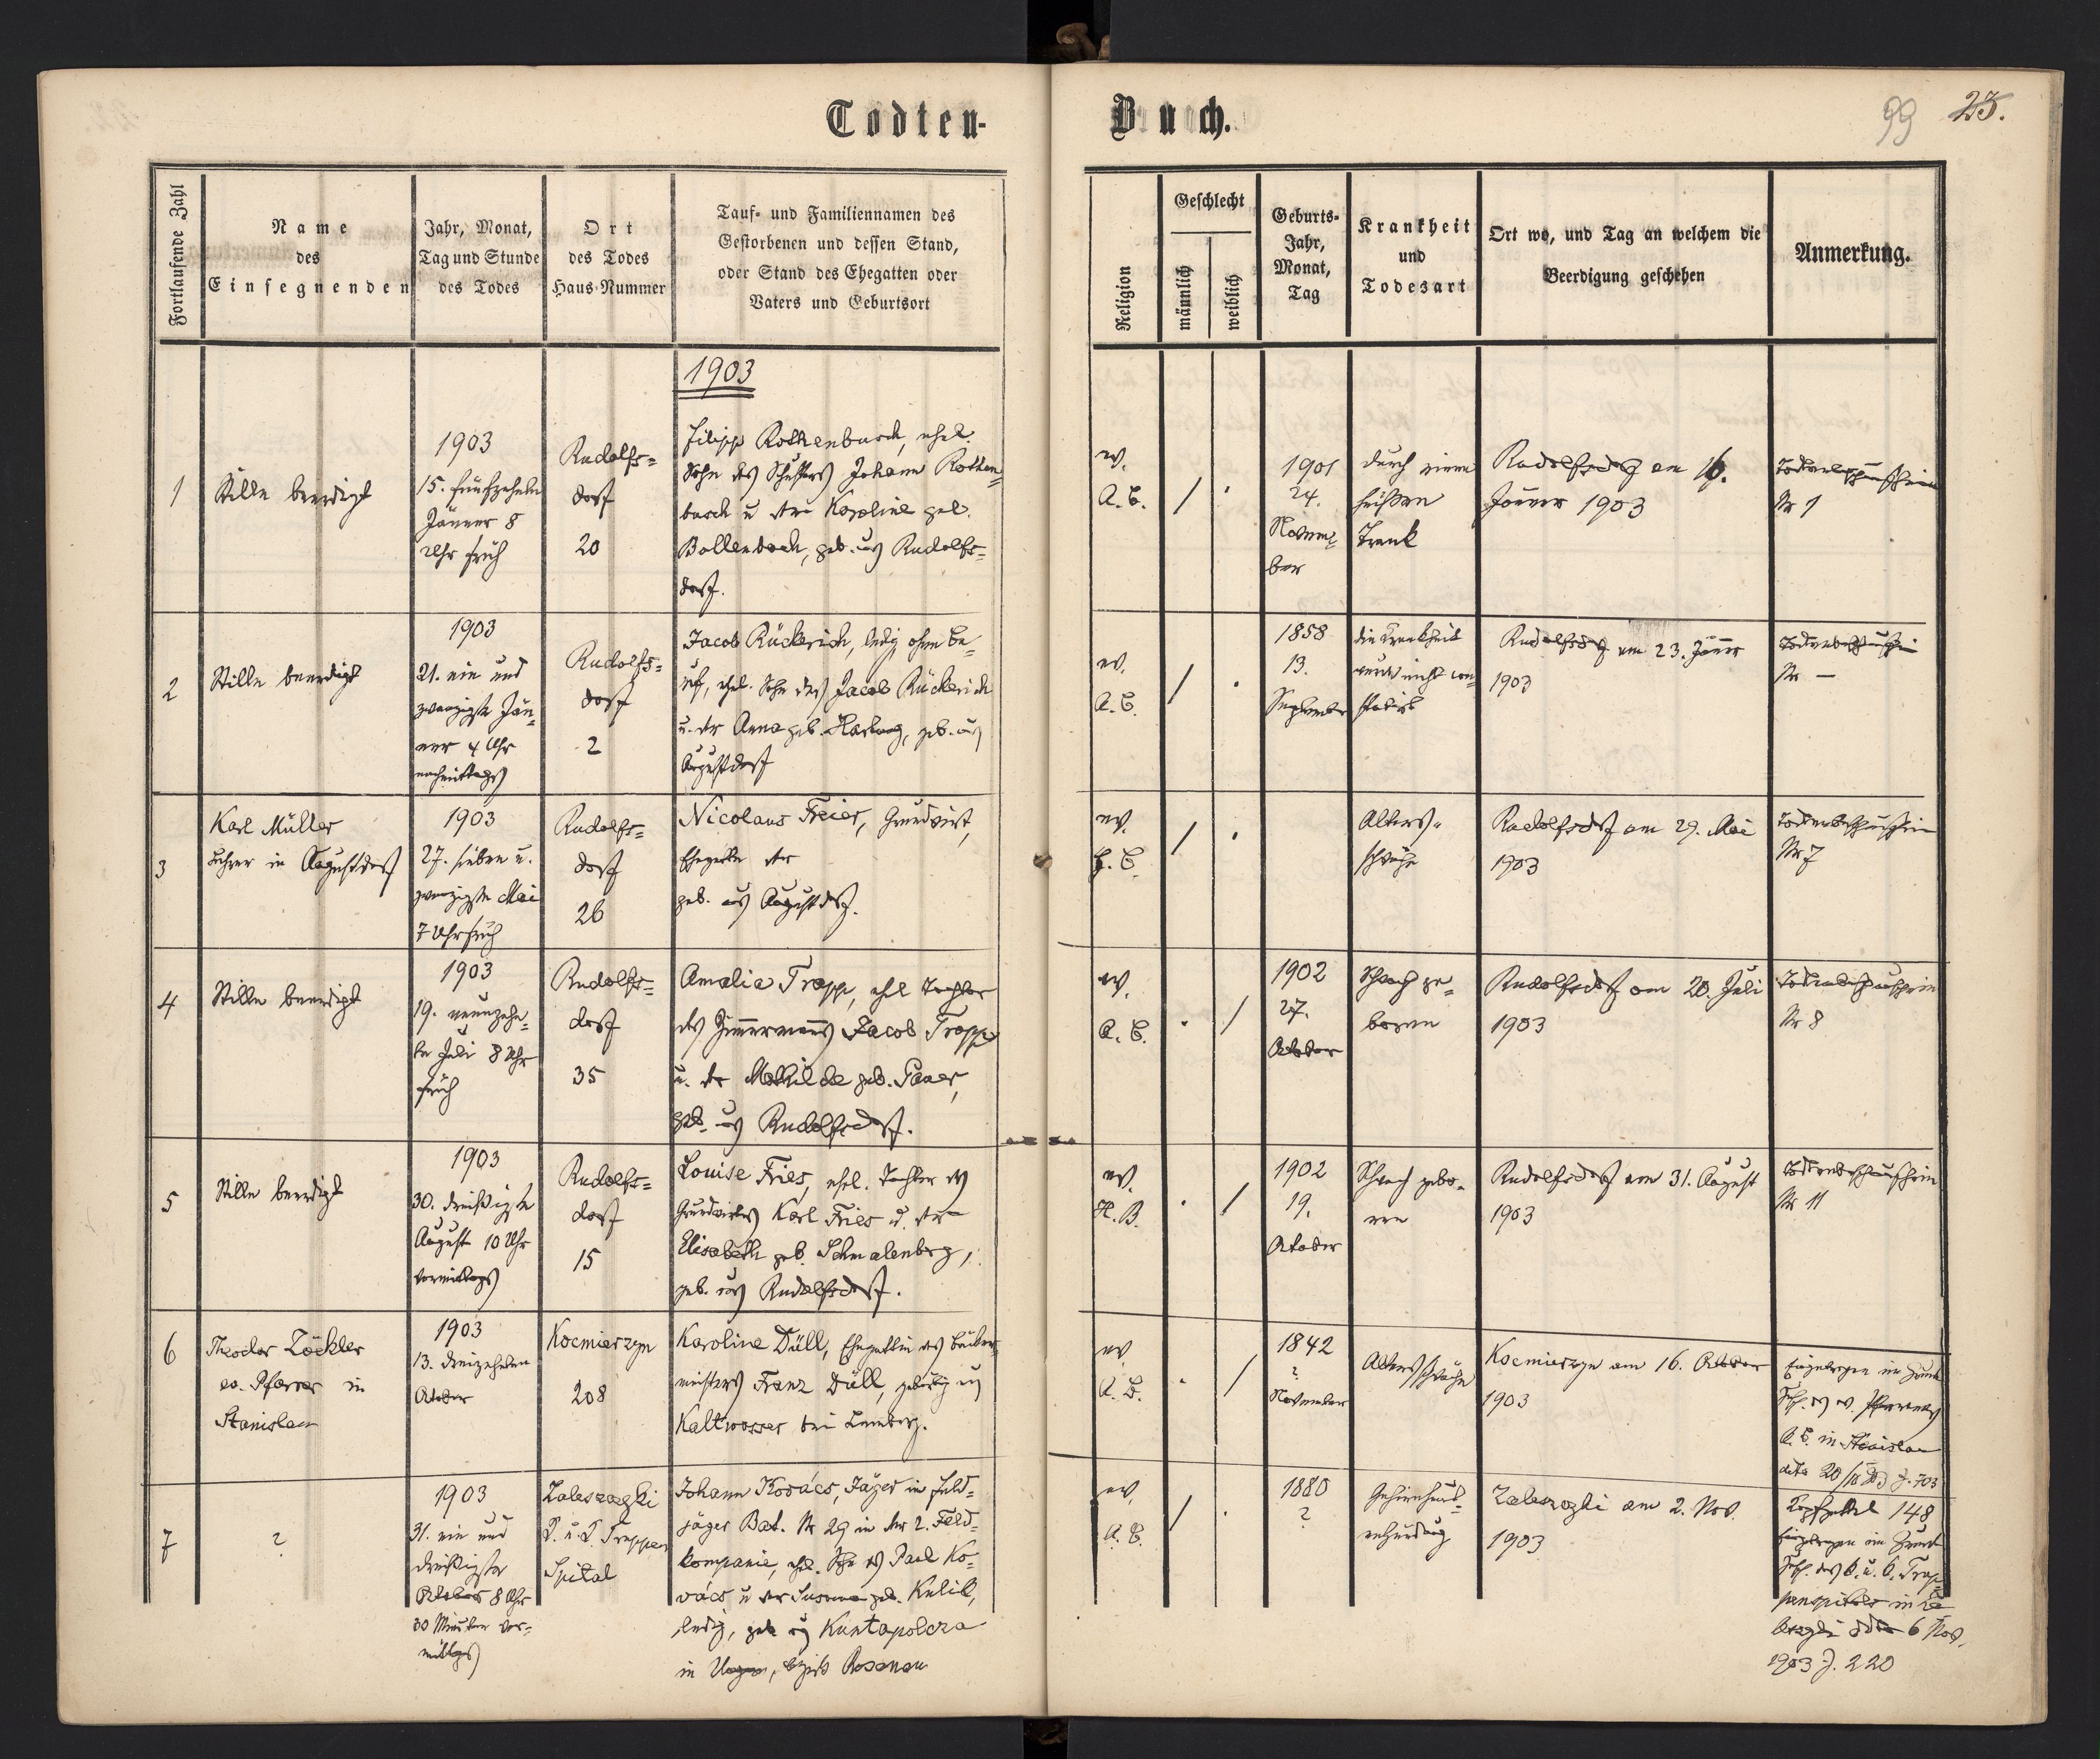 Todten-
Buch.
99
23.
Fortlaufende Zahl
Name
des
Einsegnenden
Jahr, Monat,
Tag und Stunde
des Todes
Ort
des Todes
Haus-Nummer
Tauf- und Familiennamen des
Gestorbenen und dessen Stand,
oder Stand des Ehegatten oder
Vaters und Geburtsort
Religion
Geschlecht
männlich
weiblich
Geburts-
Jahr,
Monat,
Tag
Krankheit
und
Todesart
Ort wo, und Tag an welchem die
Beerdigung geschehen
Anmerkung.
1903
1
Stille beerdigt
1903
15. fünfzehnten
Jänner 8
Uhr früh
Rudolfs=
dorf
20
Filipp Rothenbusch, ehel.
Sohn des Schusters Johann Rothen=
busch u der Karoline geb.
Bollenbach, geb. aus Rudolfs=
dorf.
ev.
A. B.
/ .
1901
24.
Novem=
ber
durch einen
heißen
Trank
Rudolfsdorf am 16.
Jänner 1903
Todtenbeschauschein
Nr 1
2
Stille beerdigt
1903
21. ein und
zwanzigste Jän=
ner 4 Uhr
nachmittags
Rudolfs=
dorf
2
Jacob Rückerich, ledig ohne Be=
ruf, ehel. Sohn des Jacob Rückerich
u. der Anna geb. Hartung, geb. aus
Augustdorf
ev.
A. B.
/ .
1858
13.
September
die Krankheit
wurde nicht con=
statirt
Rudolfsdorf am 23. Jänner
1903
Todtenbeschauschein
Nr —
3
Karl Müller
Lehrer in Augustdorf
1903
27. sieben u.
zwanzigste Mai
7 Uhr früh
Rudolfs=
dorf
26
Nicolaus Freier, Grundwirt,
Ehegatte der
geb. aus Augustdorf.
ev.
H. B.
/ .
Alters=
schwäche
Rudolfsdorf am 29. Mai
1903
Todtenbeschauschein
Nr 7
4
Stille beerdigt
1903
19. neunzehn=
te Juli 8 Uhr
früh
Rudolfs=
dorf
35
Amalia Trapp, ehel Tochter
des Zimmermanns Jacob Trapp
u. der Mathilde geb. Pauer,
geb. aus Rudolfsdorf.
ev.
A. B.
. /
1902
27.
October
Schwach ge=
boren
Rudolfsdorf am 20. Juli
1903
Todtenbeschauschein
Nr 8
5
Stille beerdigt
1903
30. dreißigste
August 10 Uhr
vormittags
Rudolfs=
dorf
15
Louise Fries, ehel. Tochter des
Grundwirtes Karl Fries u. der
Elisabeth geb. Schmalenberg,
geb. aus Rudolfsdorf.
ev.
H. B.
. /
1902
19.
October
Schwach gebo=
ren
Rudolfsdorf am 31. August
1903
Todtenbeschauschein
Nr 11
6
Theodor Zöckler
ev. Pfarrer in
Stanislau
1903
13. dreizehnten
October
Kocmierzyn
208
Karoline Düll, Ehegattin des Bäcker=
meisters Franz Düll, gebürtig aus
Kaltwasser bei Lemberg.
ev.
A. B.
. /
1842
?
November
Altersschwäche
Kocmierzyn am 16. October
1903
Eingetragen im Grunde
Zusch. des ev. Pfarramtes
A. B. in Stanislau
dto 20/10 903 Z. 703
7
?
1903
31. ein und
dreißigste
October 8 Uhr
30 Minuten vor=
mittags
Zaleszczyki
k. u. k. Truppen
Spital
Johann Kovács, Jäger in Feld=
jäger Bat. Nr 29 in der 2. Feld=
kompanie, ehel. Sohn des Paul Ko=
vács u der Susanna geb. Kulik,
ledig, geb aus Kuntapolcza
in Ungarn, Bezirk Rosenau
ev.
A. B.
/ .
1880
?
Gehirnhaut=
entzündung
Zaleszczyki am 2. Nov.
1903
Kopfzettel 148
Eingetragen im Grunde
Zusch. des k. u. k. Trup=
penspitals in Za
leszczyki ddto 6 Nov.
1903 Z. 220